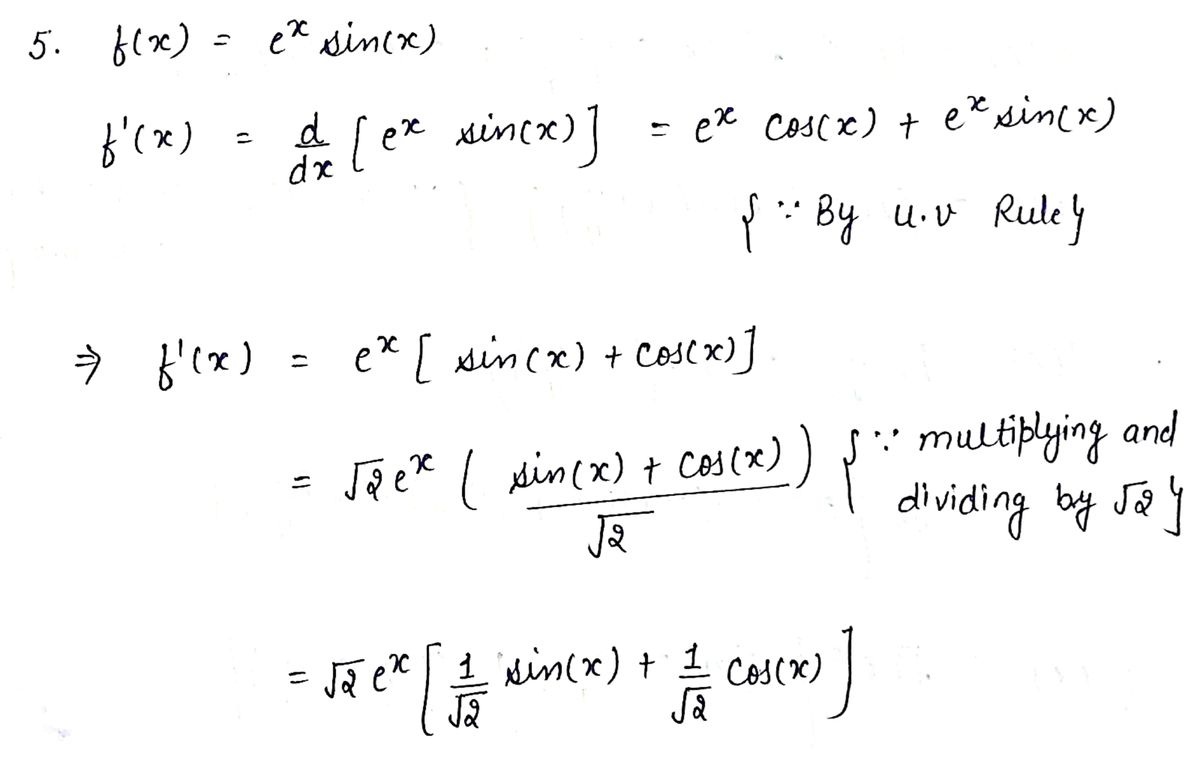 5. f(x) = eˣ sin(x)
f'(x) = d/dx [eˣ sin(x)] = eˣ cos(x) + eˣ sin(x)
{∵ By u.v Rule}
⇒ f'(x) = eˣ [sin(x) + cos(x)]
= √2 eˣ ( (sin(x) + cos(x))/√2 ) {∵ multiplying and
dividing by √2}
= √2 eˣ [ 1/√2 sin(x) + 1/√2 cos(x) ]